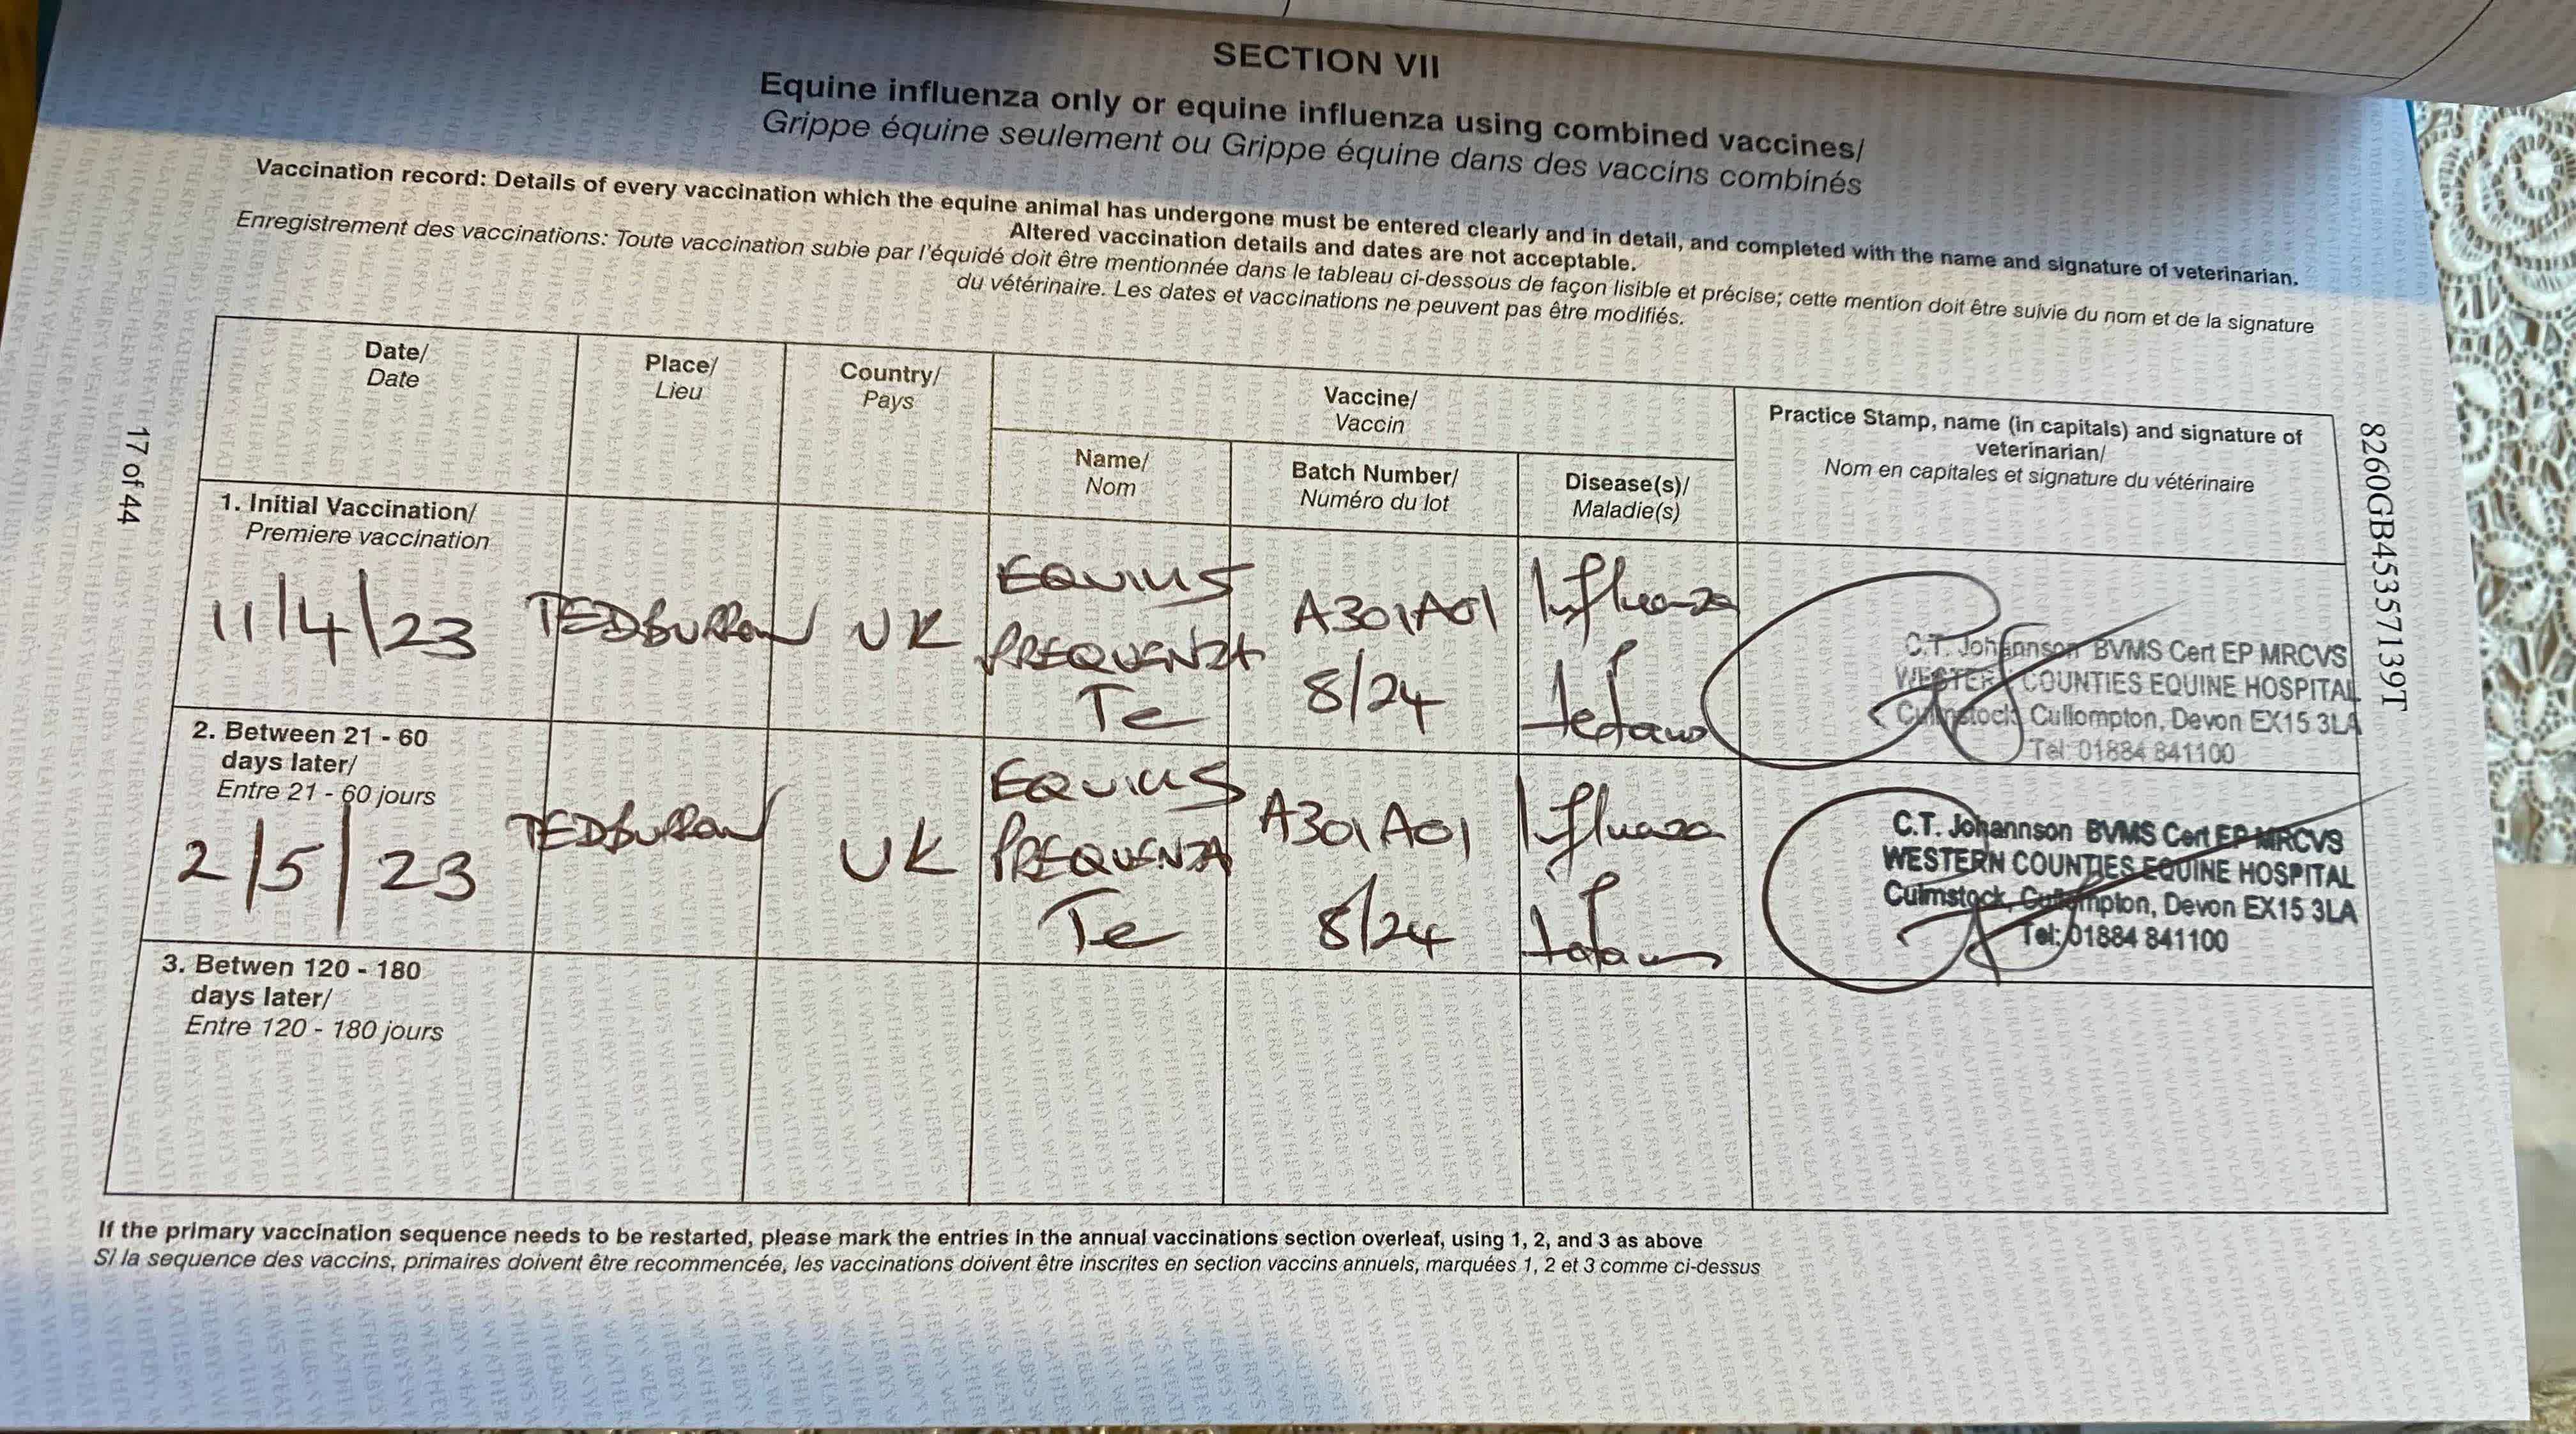 SECTION VII
Equine influenza only or equine influenza using combined vaccines/
Grippe équine seulement ou Grippe équine dans des vaccins combinés
Vaccination record: Details of every vaccination which the equine animal has undergone must be entered clearly and in detail, and completed with the name and signature of veterinarian.
Altered vaccination details and dates are not acceptable.
Enregistrement des vaccinations: Toute vaccination subie par l'équidé doit être mentionnée dans le tableau ci-dessous de façon lisible et précise; cette mention doit être suivie du nom et de la signature
du vétérinaire. Les dates et vaccinations ne peuvent pas être modifiés.
Date/
Date
Place/
Lieu
Country/
Pays
Vaccine/
Vaccin
Name/
Nom
Batch Number/
Numéro du lot
Disease(s)/
Maladie(s)
Practice Stamp, name (in capitals) and signature of
veterinarian/
Nom en capitales et signature du vétérinaire
1. Initial Vaccination/
Premiere vaccination
11/4/23
UK
PREQUENZA
Te
A301A01
8/24
Influenza
C.T. Johannson BVMS Cert EP MRCVS
WESTERN COUNTIES EQUINE HOSPITAL
Culmstock, Cullompton, Devon EX15 3LA
Tel: 01884 841100
2. Between 21 - 60
days later/
Entre 21 - 60 jours
2/5/23
UK
PREQUENZA
Te
A301A01
8/24
C.T. Johannson BVMS Cert EP MRCVS
WESTERN COUNTIES EQUINE HOSPITAL
Culmstock, Cullompton, Devon EX15 3LA
Tel: 01884 841100
3. Betwen 120 - 180
days later/
Entre 120 - 180 jours
If the primary vaccination sequence needs to be restarted, please mark the entries in the annual vaccinations section overleaf, using 1, 2, and 3 as above
Si la sequence des vaccins, primaires doivent être recommencée, les vaccinations doivent être inscrites en section vaccins annuels, marquées 1, 2 et 3 comme ci-dessus
17 of 44
8260GB45357139T